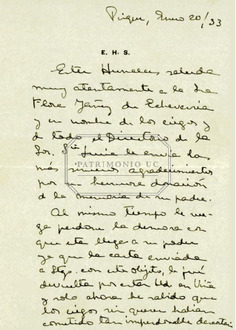 Pirque, Enero 20/33
E. H. S.
Ester Huneeus saluda
muy atentamente a la Sra
Flora Yáñez de Echeverría
y en nombre de los ciegos y
de todo el Directorio de la
Soc. Sta Lucía le envía los
más sinceros agradecimientos
PATRIMONIO UC
por su hermosa donación
de la memoria de su padre.
Al mismo tiempo le rue-
ga perdone la demora con
que esta llega a su poder
ya que la carta enviada
a Stgo. con este objeto, le fué
devuelta por estar Ud en Viña
y solo ahora ha sabido que
los ciegos sin querer habían
cometido tan imperdonable